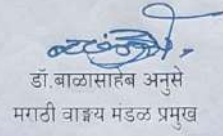 डॉ.बाळासाहेब अनुसे
मराठी वाङ्मय मंडळ प्रमुख